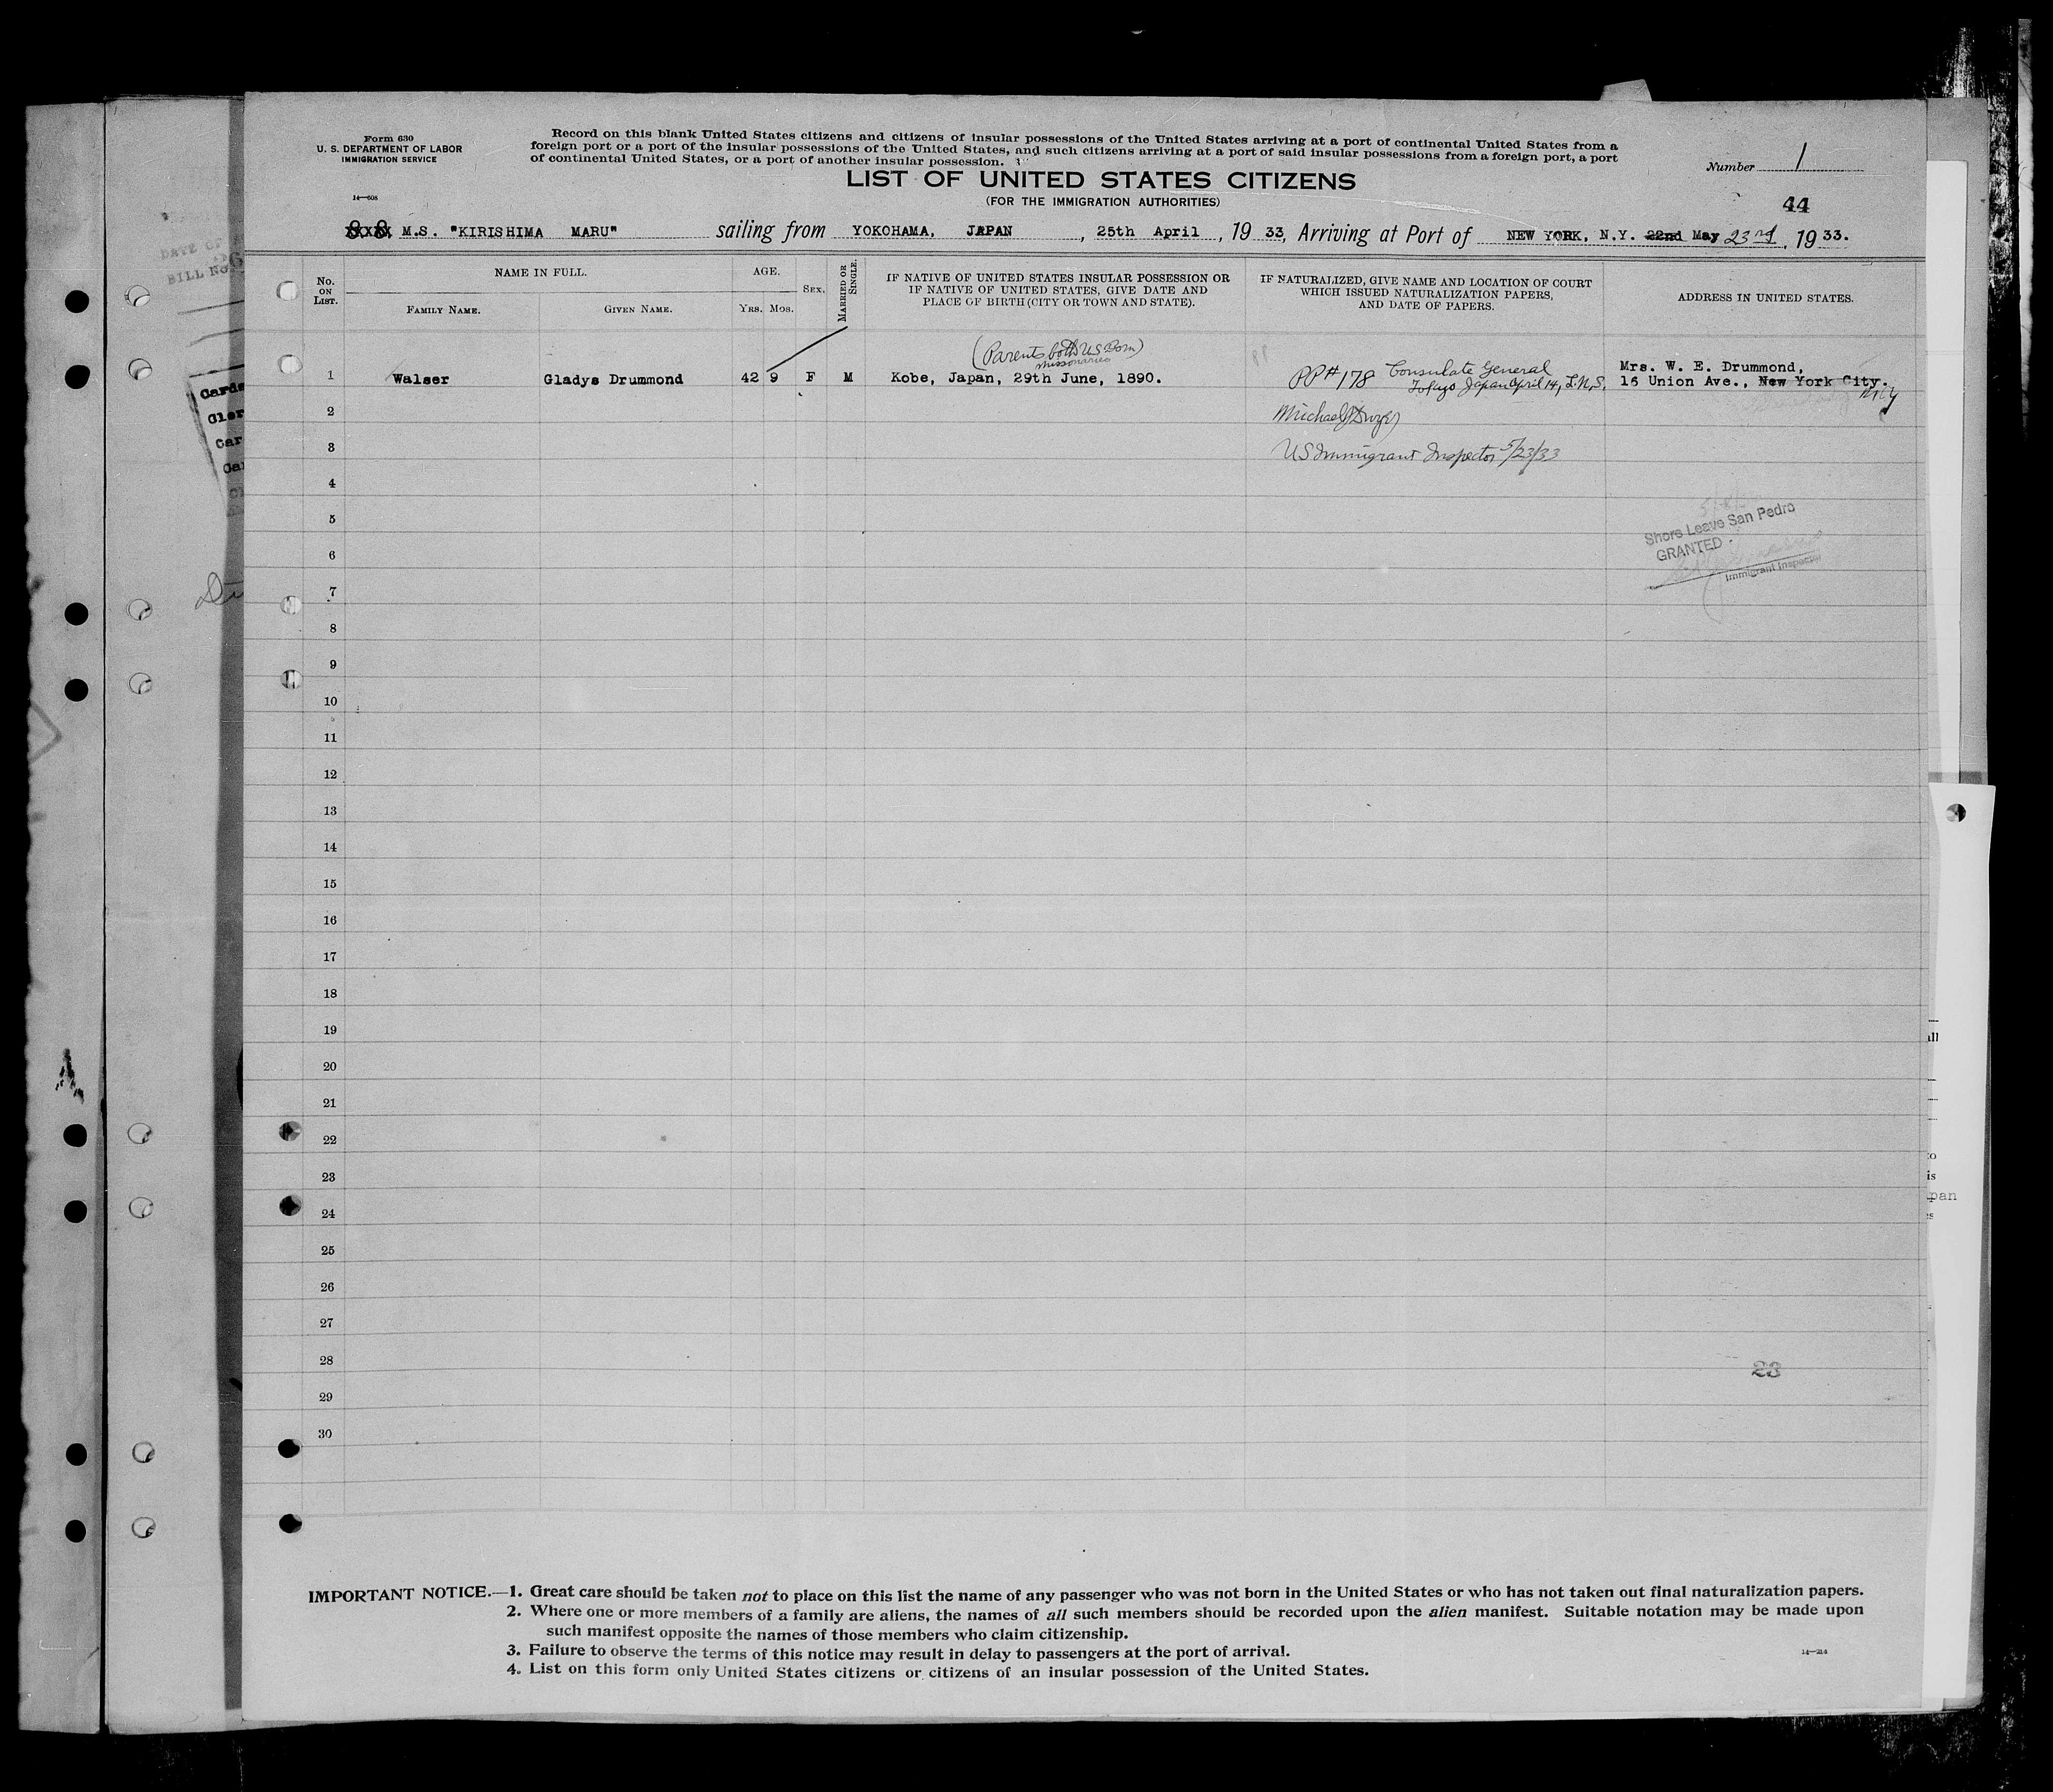 Form 630
U. S. DEPARTMENT OF LABOR
IMMIGRATION SERVICE
14—608
Record on this blank United States citizens and citizens of insular possessions of the United States arriving at a port of continental United States from a
foreign port or a port of the insular possessions of the United States, and such citizens arriving at a port of said insular possessions from a foreign port, a port
of continental United States, or a port of another insular possession.
Number 1
LIST OF UNITED STATES CITIZENS
(FOR THE IMMIGRATION AUTHORITIES)
44
M.S. "KIRISHIMA MARU" sailing from YOKOHAMA, JAPAN, 25th April, 19 33, Arriving at Port of NEW YORK, N.Y. 22nd May 23rd, 19 33.
No. ON LIST.
NAME IN FULL.
FAMILY NAME.
GIVEN NAME.
AGE.
YRS. MOS.
SEX.
MARRIED OR SINGLE.
IF NATIVE OF UNITED STATES INSULAR POSSESSION OR
IF NATIVE OF UNITED STATES, GIVE DATE AND
PLACE OF BIRTH (CITY OR TOWN AND STATE).
IF NATURALIZED, GIVE NAME AND LOCATION OF COURT
WHICH ISSUED NATURALIZATION PAPERS,
AND DATE OF PAPERS.
ADDRESS IN UNITED STATES.
(Parents both US Born)
missionaries
1 Walser Gladys Drummond 42 9 F M Kobe, Japan, 29th June, 1890.
PP# 178 Consulate General
Tokyo Japan April 14,
Mrs. W. E. Drummond,
16 Union Ave., New York City.
2
Michael J Dwyer
3
US Immigrant Inspector 5/23/33
4
5
Shore Leave San Pedro
GRANTED
Immigrant Inspector
6
7
8
9
10
11
12
13
14
15
16
17
18
19
20
21
22
23
24
25
26
27
28
23
29
30
IMPORTANT NOTICE.—1. Great care should be taken not to place on this list the name of any passenger who was not born in the United States or who has not taken out final naturalization papers.
2. Where one or more members of a family are aliens, the names of all such members should be recorded upon the alien manifest. Suitable notation may be made upon
such manifest opposite the names of those members who claim citizenship.
3. Failure to observe the terms of this notice may result in delay to passengers at the port of arrival.
4. List on this form only United States citizens or citizens of an insular possession of the United States.
14—214